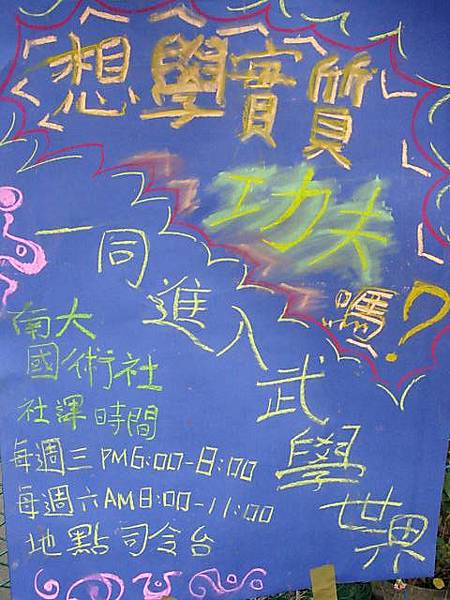 想學實質
功夫
嗎?
一同進入武學世界
南大
國術社
社課時間
每週三 PM6:00-8:00
每週六 AM8:00-11:00
地點 司令台